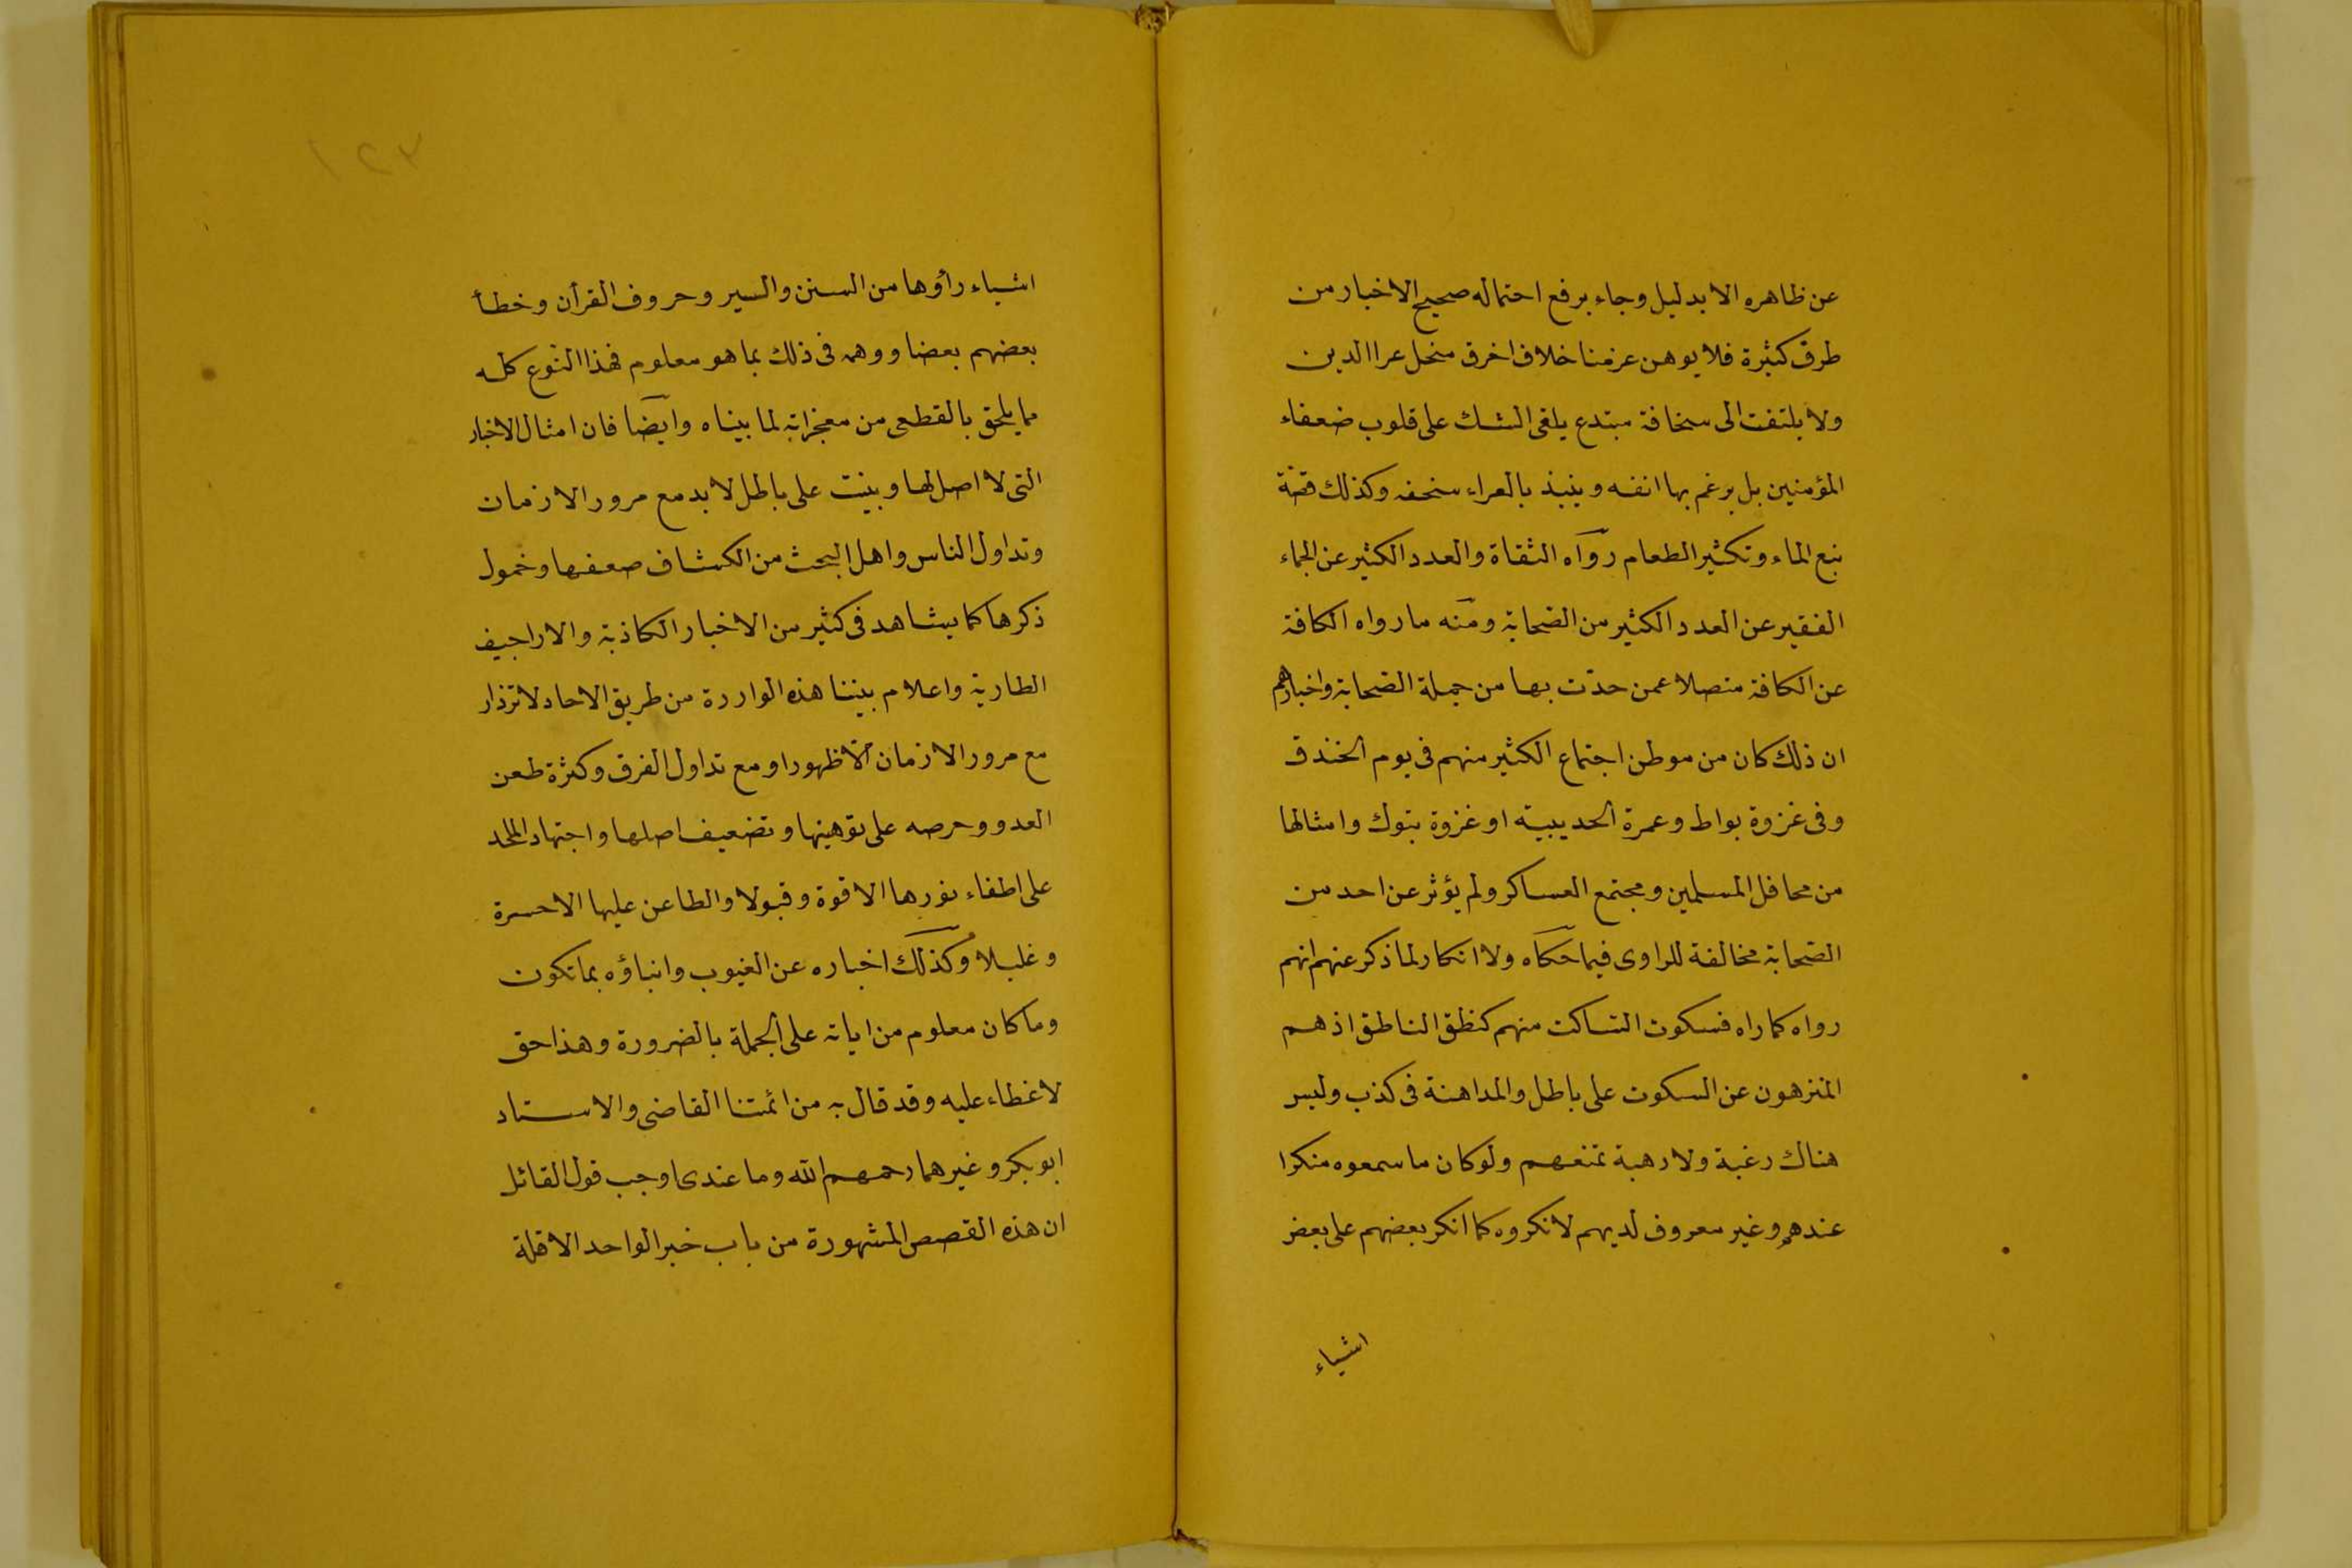 عن ظاهره الا بدليل وجاء برفع احتماله صحيح الاخبار من
طرق كثيرة فلا يوهن عزمنا خلاف اخرق منحل عرا الدين
ولا يلتفت الى سخافة مبتدع يلقى الشك على قلوب ضعفاء
المؤمنين بل يرغم بها انفه وينبذ بالعراء سخفه وكذلك قصّة
نبع الماء وتكثير الطعام رواه الثقاة والعدد الكثير عن الجماء
الفقير عن العدد الكثير من الصّحابة ومنه ما رواه الكافة
عن الكافة متصلا عمن حدّث بها من جملة الصّحابة واخبارهم
ان ذلك كان من موطن اجتماع الكثير منهم فى يوم الخندق
وفى غزوة بواط وعمرة الحديبية او غزوة تبوك وامثالها
من محافل المسلمين ومجتمع العساكر ولم يؤثر عن احد من
الصّحابة مخالفة للراوى فيما حكاه ولا انكار لما ذكر عنهم انهم
رواه كما راه فسكوت السّاكت منهم كنطق الناطق اذ هم
المنزهون عن السكوت على باطل والمداهنة فى كذب وليس
هناك رغبة ولا رهبة تمنعهم ولو كان ما سمعوه منكرا
عندهم وغير معروف لديهم لانكروه كما انكر بعضهم على بعض
اشياء
١٢٣
اشياء رأوها من السنن والسير وحروف القرأن وخطأ
بعضهم بعضا ووهمه فى ذلك بما هو معلوم فهذا النّوع كله
مما يلحق بالقطعى من معجزاته لما بيناه وايضا فان امثال الاخبار
التى لا اصل لها وبنيت على باطل لا بد مع مرور الازمان
وتداول الناس واهل البحث من انكشاف ضعفها وخمول
ذكرها كما يشاهد فى كثير من الاخبار الكاذبة والاراجيف
الطارية واعلام نبينا هذه الواردة من طريق الاحاد لا تزداد
مع مرور الازمان الّا ظهورا ومع تداول الفرق وكثرة طعن
العدو وحرصه على توهينها وتضعيف اصلها واجتهاد الملحد
على اطفاء نورها الا قوة وقبولا والطاعن عليها الا حسرة
وغليلا وكذلك اخباره عن الغيوب وانباؤه بما تكون
وما كان معلوم من اياته على الجملة بالضرورة وهذا حق
لا غطاء عليه وقد قال به من ائمتنا القاضى والاستاد
ابو بكر وغيرهما رحمهم الله وما عندى اوجب قول القائل
ان هذه القصص المشهورة من باب خبر الواحد الا قلة